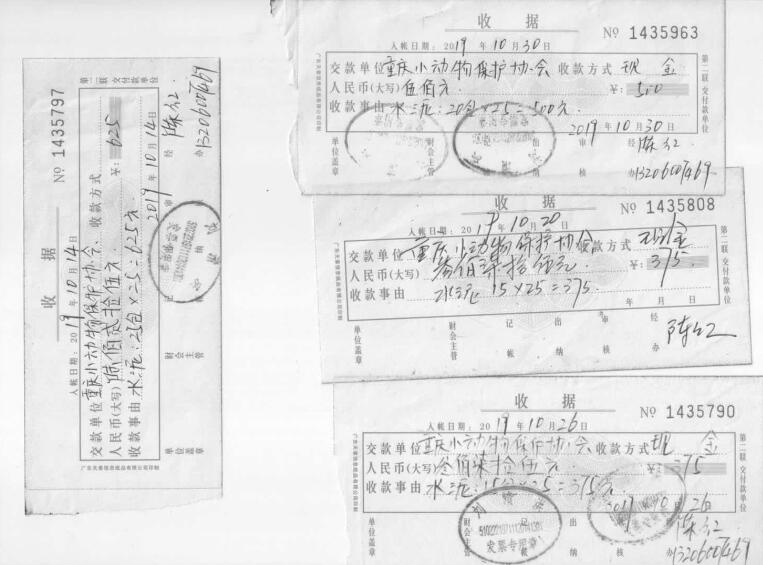 收据
№ 1435797
入帐日期：2019年10月14日
交款单位 重庆小动物保护协会 收款方式
人民币(大写) 陆佰贰拾伍元 ¥：625
收款事由 水泥：25包×25=625元
2019年10月14日
单位盖章 财会主管 记帐 出纳 审核 经办 陈红
第二联交付款单位
收据
№ 1435963
入帐日期：2019年10月30日
交款单位 重庆小动物保护协会 收款方式 现金
人民币(大写) 伍佰元 ¥：500
收款事由 水泥：20包×25=500元
2019年10月30日
单位盖章 财会主管 记帐 出纳 审核 经办 陈红
第二联交付款单位
收据
№ 1435808
入帐日期：2019年10月20日
交款单位 重庆小动物保护协会 收款方式 现金
人民币(大写) 叁佰柒拾伍元 ¥：375
收款事由 水泥 15×25=375.
年 月 日
单位盖章 财会主管 记帐 出纳 审核 经办 陈红
第二联交付款单位
收据
№ 1435790
入帐日期：2019年10月26日
交款单位 重庆小动物保护协会 收款方式 现金
人民币(大写) 叁佰柒拾伍元 ¥：375
收款事由 水泥：15包×25=375元
2019年10月26日
单位盖章 财会主管 记帐 出纳 审核 经办 陈红
发票专用章
第二联交付款单位